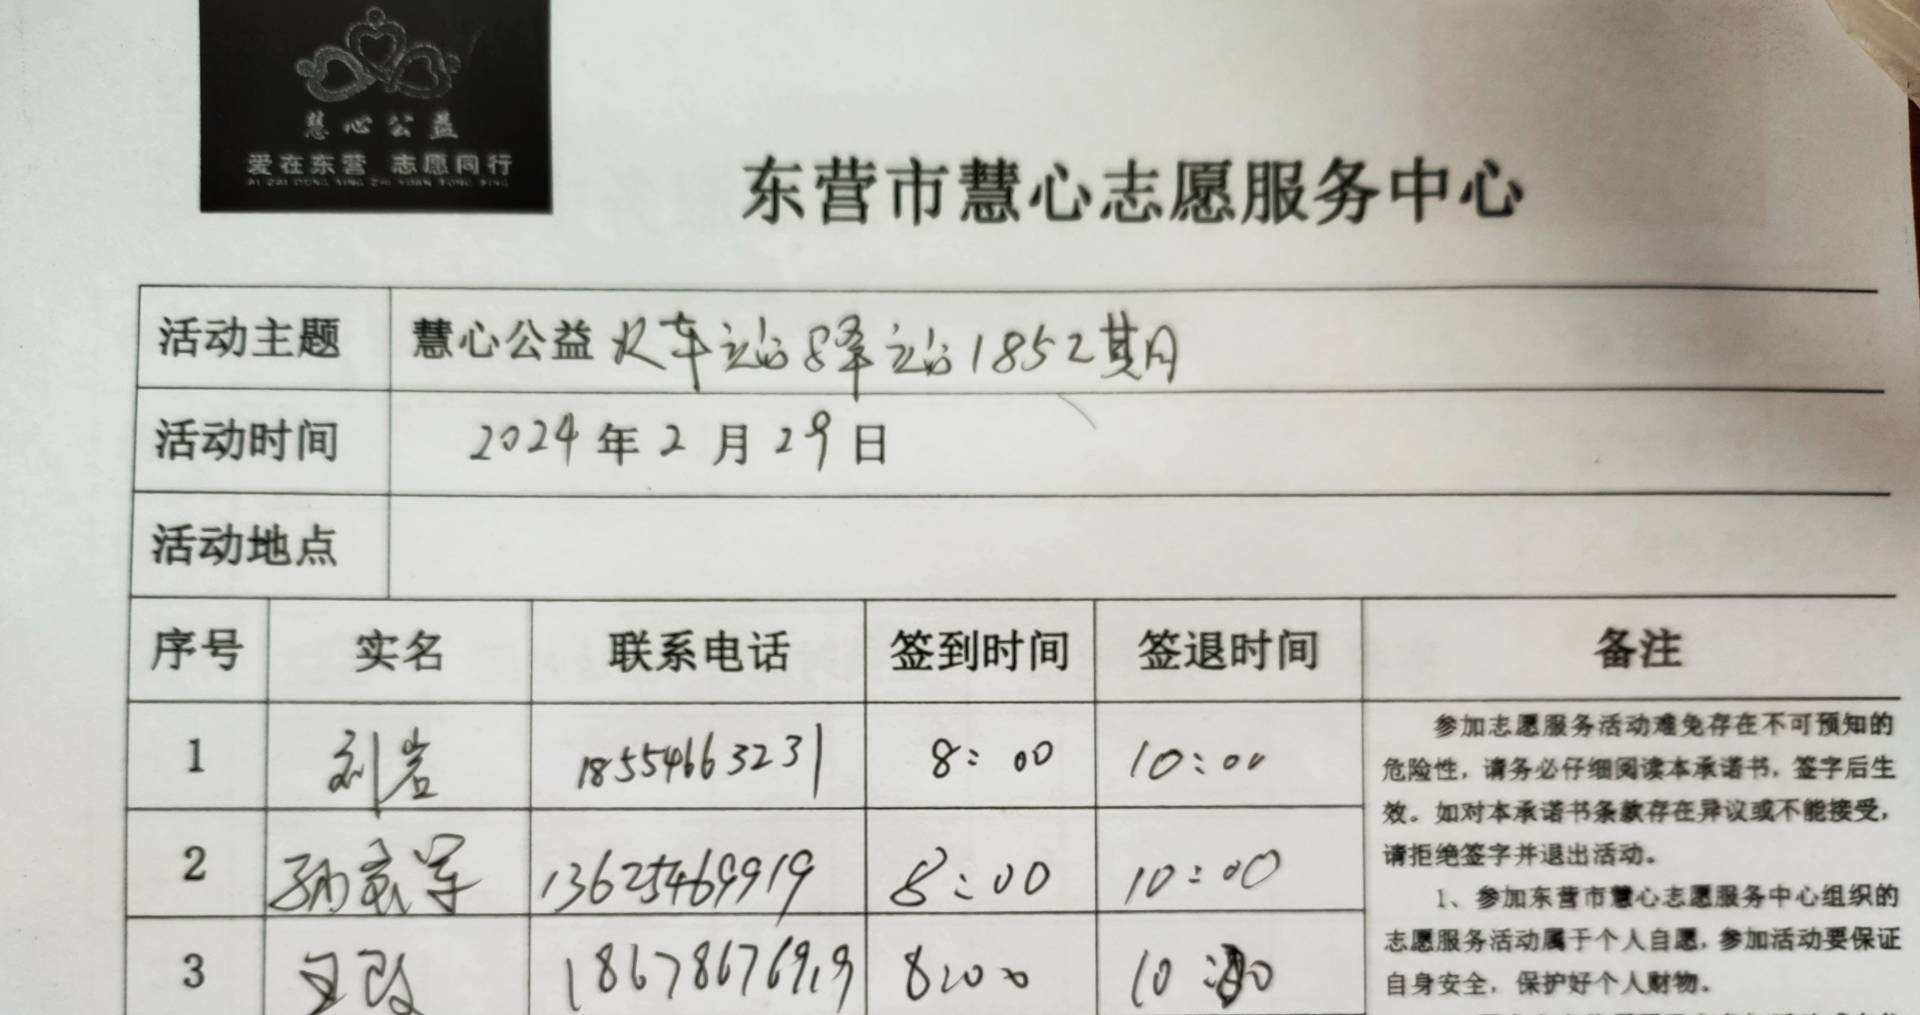 慧心公益
爱在东营 志愿同行
AI ZAI DONG YING ZHI YUAN TONG XING
东营市慧心志愿服务中心
活动主题 慧心公益火车站驿站1852期
活动时间 2024年2月29日
活动地点
序号 实名 联系电话 签到时间 签退时间 备注
1 刘岩 18554663231 8:00 10:00
2 孙 军 13625469919 8:00 10:00
3 18678676919 8:00 10:00
参加志愿服务活动难免存在不可预知的
危险性，请务必仔细阅读本承诺书，签字后生
效。如对本承诺书条款存在异议或不能接受，
请拒绝签字并退出活动。
1、参加东营市慧心志愿服务中心组织的
志愿服务活动属于个人自愿，参加活动要保证
自身安全，保护好个人财物。